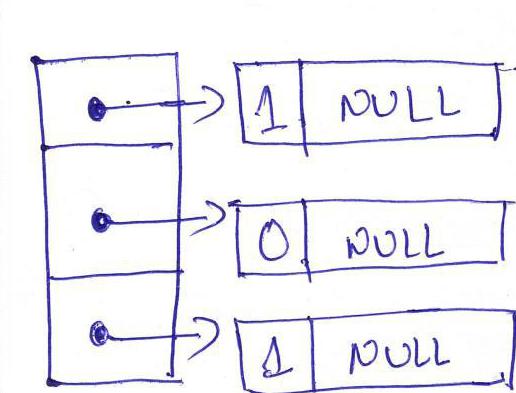 1 NULL
0 NULL
1 NULL